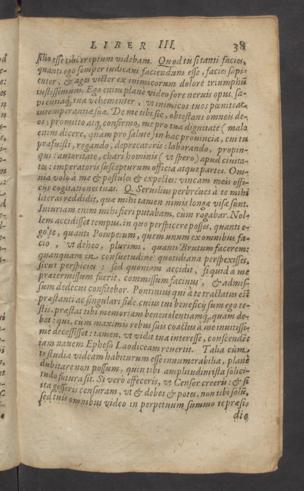 LIBER III. 38
silio esse tibi propium videbam. Quod tu si tanti facies,
quanti ego semper iudicaui faciendum esse, facio sapi-
enter, & agis victor ex inimicorum dolore triumphū
iustissimum. Ego enim planè video fore neruis opui sa-
pientiaq; tua vehementer, vt inimicos tuos pœniteat
intemperantiæ suæ. De me tibi sic, obtestans omneis de-
os, promitto atq; confirmo, me pro tua dignitate (malo
enim dicere, quàm pro salute) in hac prouincia, cui tu
præfuisti, rogando, deprecatoris: laborando, propin-
qui: autoritate, chari hominis (vt spero) apud ciuita-
tes: imperatoris suscepturum officia atque partes. Om-
nia volo à me & postules & expectes: vincam meis offi-
cijs cogitationes tuas. Q. Seruilius perbreues à te mihi
literas reddidit, quæ mihi tamen nimis longæ visæ sunt.
Iniuriam enim mihi fieri putabam, cum rogabar. Nol-
lem accidisset tempus, in quo perspicere posses, quanti e-
go te, quanti Pompeium, quem vnum ex omnibus fa-
cio, vt debeo, plurimi, quanti Brutum facerem:
quanquam in consuetudine quotidiana perspexisses,
sicut perspicies: sed quoniam accidit, si quid à me
prætermissum fuerit, commissum facinus, & admis-
sum dedecus confitebor. Pontinius qui à te tractatus est
præstanti ac singulari fide, cuius tui beneficij sum ego te-
stis, præstat tibi memoriam beneuolentiamq́; quam de-
bet: qui, cum maximis rebus suis coactus à me inuitissi-
mo decessisset: tamen, vt vidit tua interesse, conscendēs
iam nauem Epheso Laodiceam reuertit. Talia cùm
te studia videam habiturum esse innumerabilia, planè
dubitare non possum, quin tibi amplitudo ista solici-
tudo futura sit. Si verò effeceris, vt Censor creeris: & si
ita gesseris censuram, vt & debes & potes, non tibi solū,
sed tuis omnibus video in perpetuum summo te præsidio
dio